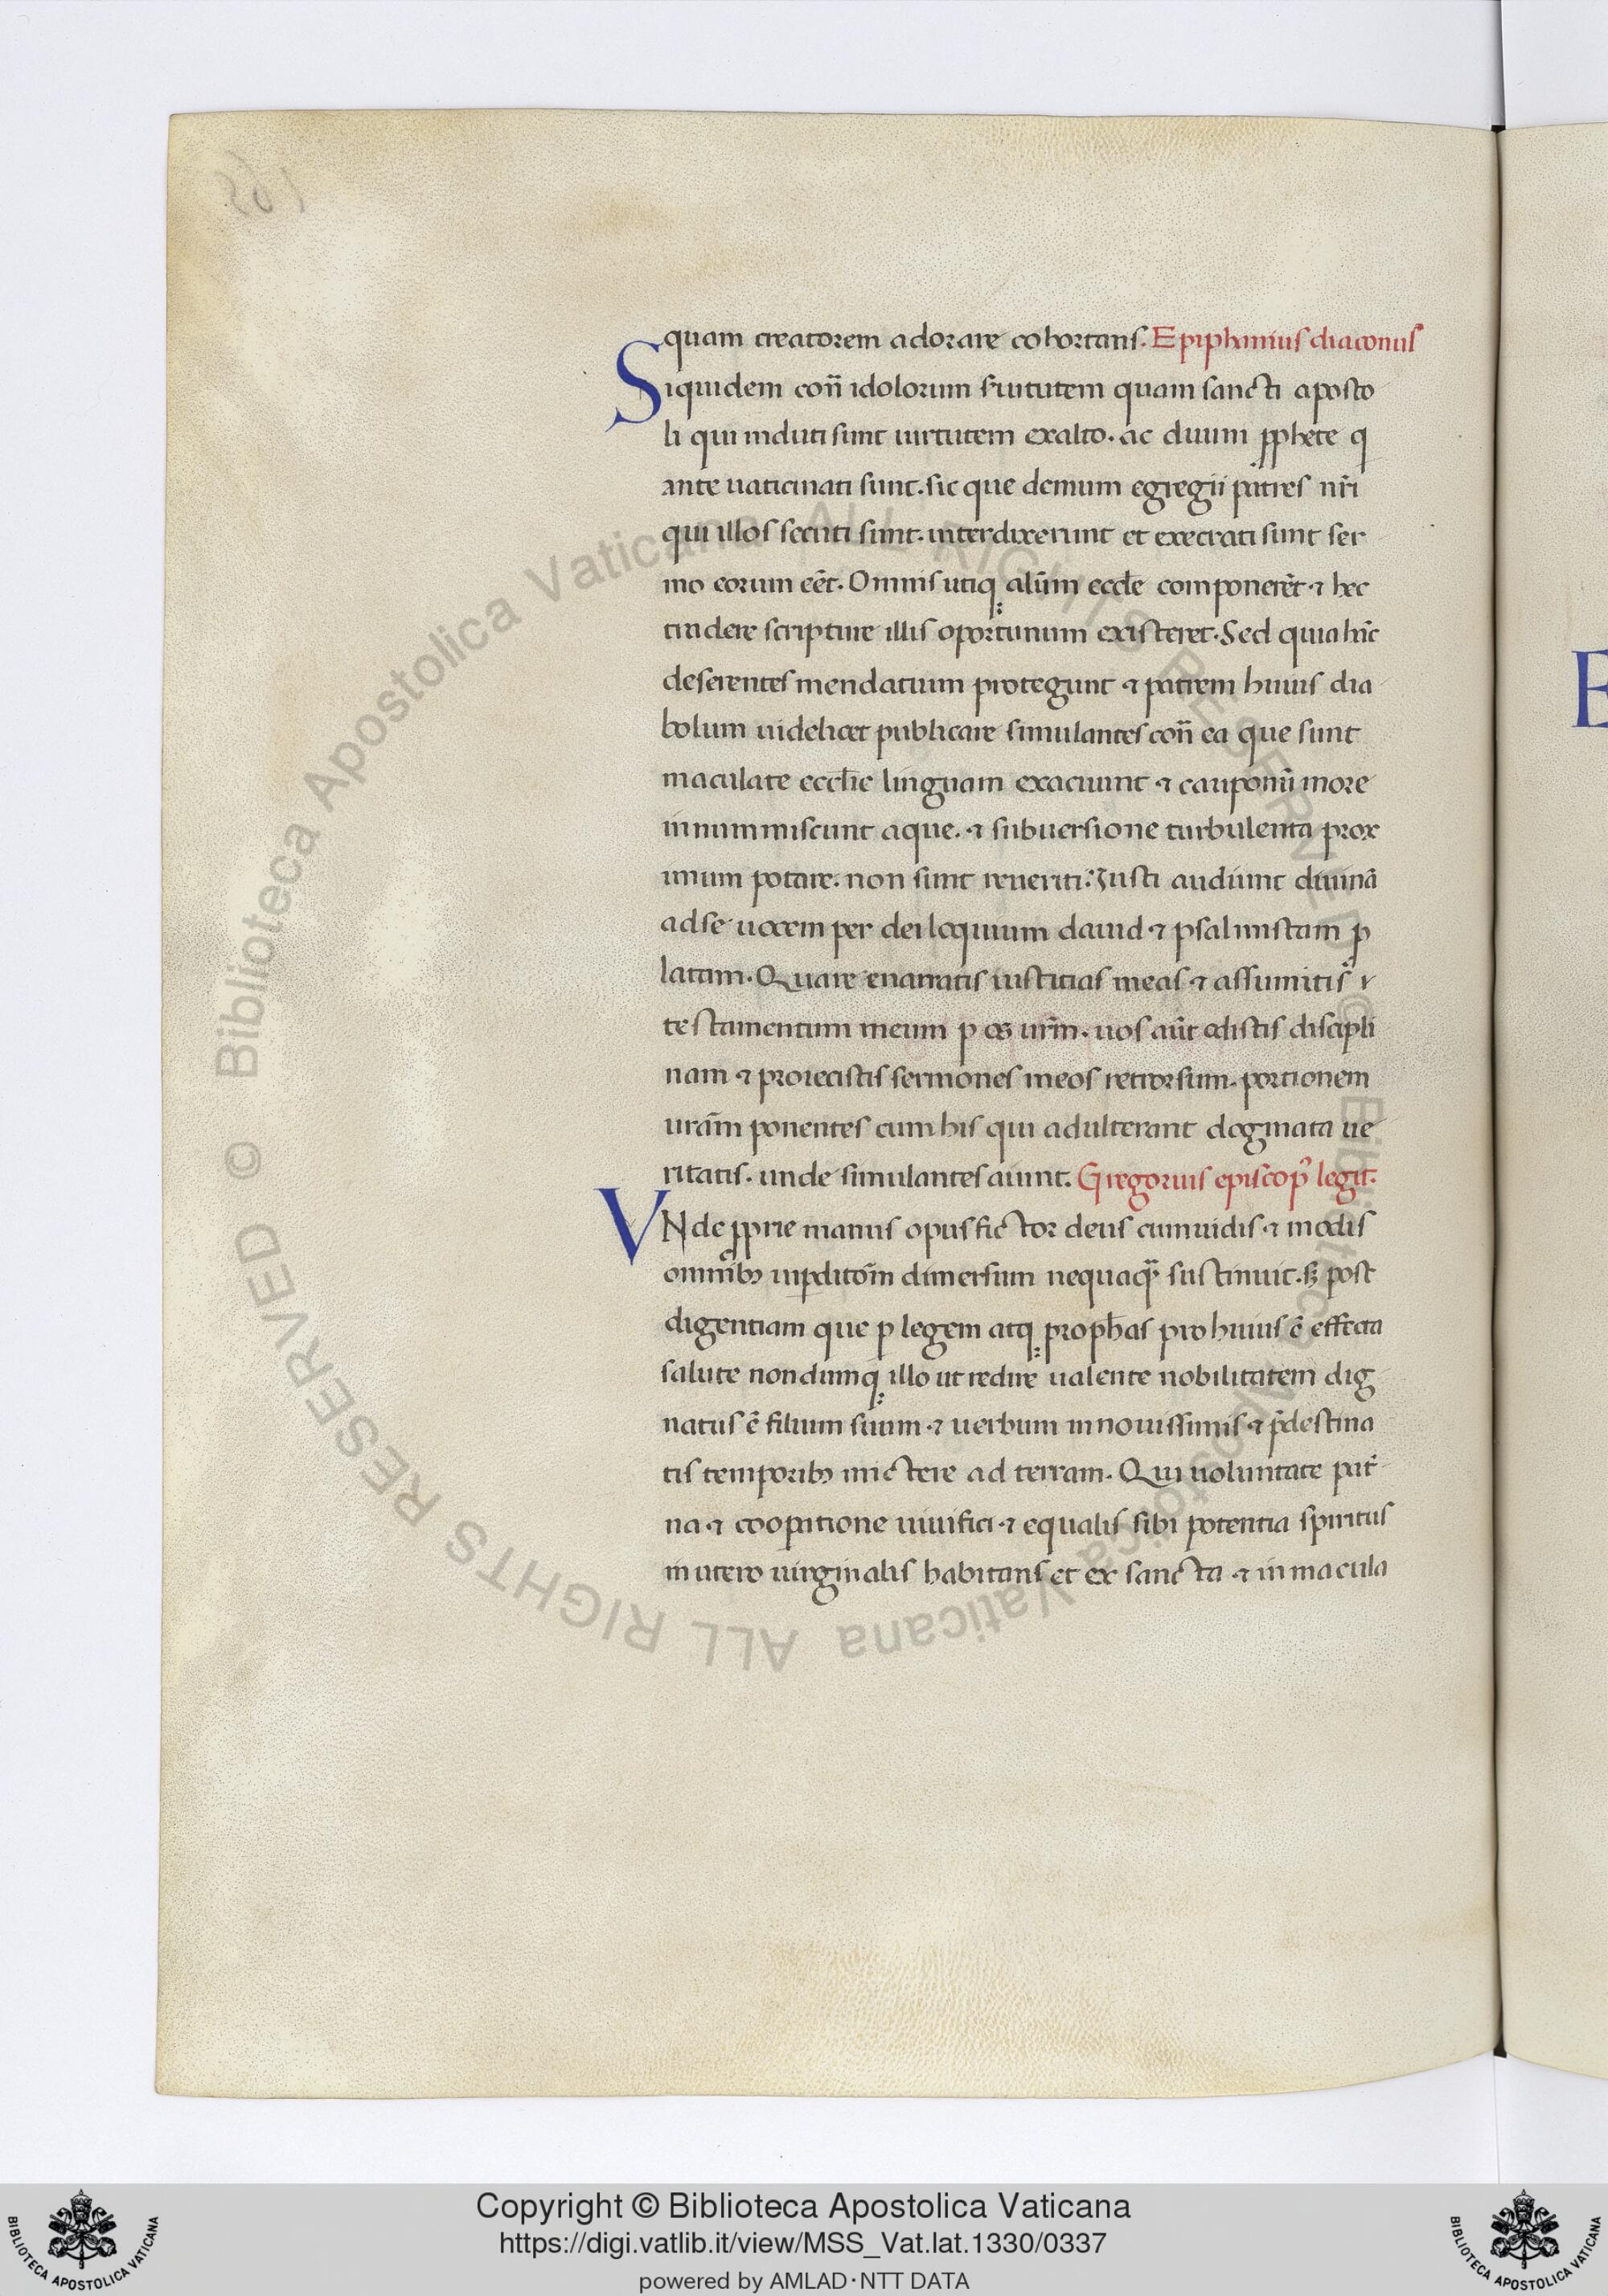 quam creatorem adorare cohortans. Epiphanius diaconus
Siquidem con̄ idolorum s̄uitutem quam sancti aposto
li qui induti sunt uirtutem exalto. ac diuum ꝓphete q
ante uaticinati sunt. sic que demum egregii patres nr̄i
qui illos secuti sunt. interdixerunt et execrati sunt ser
mo eorum eēt. Omnis utiq; alūm eccl̄e componerēt ⁊ hec
tindere scripture illis oportunum existeret. Sed quia hīc
deserentes mendatium protegunt ⁊ patrem huius dia
bolum uidelicet publicare simulantes con̄ ea que sunt
maculate eccl̄ie linguam exacuunt ⁊ cauponū more
uinum miscunt aque. ⁊ subuersione turbulenta prox
imum potare. non sunt reueriti: Iusti audiunt diuinā
ad se uocem per deiloquium dauid ⁊ psalmistam ꝓ
latam. Quare enarratis iustitias meas ⁊ assumitis
testamentum meum p os ur̄m. uos aūt odistis discipli
nam ⁊ proiecistis sermones meos retrorsum. portionem
urām ponentes cum his qui adulterant dogmata ue
ritatis. unde simulantes aiunt. Gregorius episcop᾽ legit.
VNde ꝓprie manus opus fictor deus cum uidis ⁊ modis
omnib; inꝑditōm dimersum nequaq̄ sustinuit. s; post
digentiam que ꝑ legem atq; proph̄as pro huius ē effecta
salute nondumq; illo ut redire ualente nobilitatem dig
natus ē filium suum ⁊ uerbum in nouissimis ⁊ p̄destina
tis temporib; mictere ad terram. Qui uoluntate pat̄
na ⁊ coopitione uiuifici ⁊ equalis sibi potentia spiritus
in utero uirginalis habitans et ex sancta ⁊ inmacula
© Biblioteca Apostolica Vaticana ALL RIGHTS RESERVED © Biblioteca Apostolica Vaticana ALL RIGHTS RESERVED
E
Copyright © Biblioteca Apostolica Vaticana
https://digi.vatlib.it/view/MSS_Vat.lat.1330/0337
powered by AMLAD・NTT DATA
BIBLIOTECA APOSTOLICA VATICANA
BIBLIOTECA APOSTOLICA VATICANA